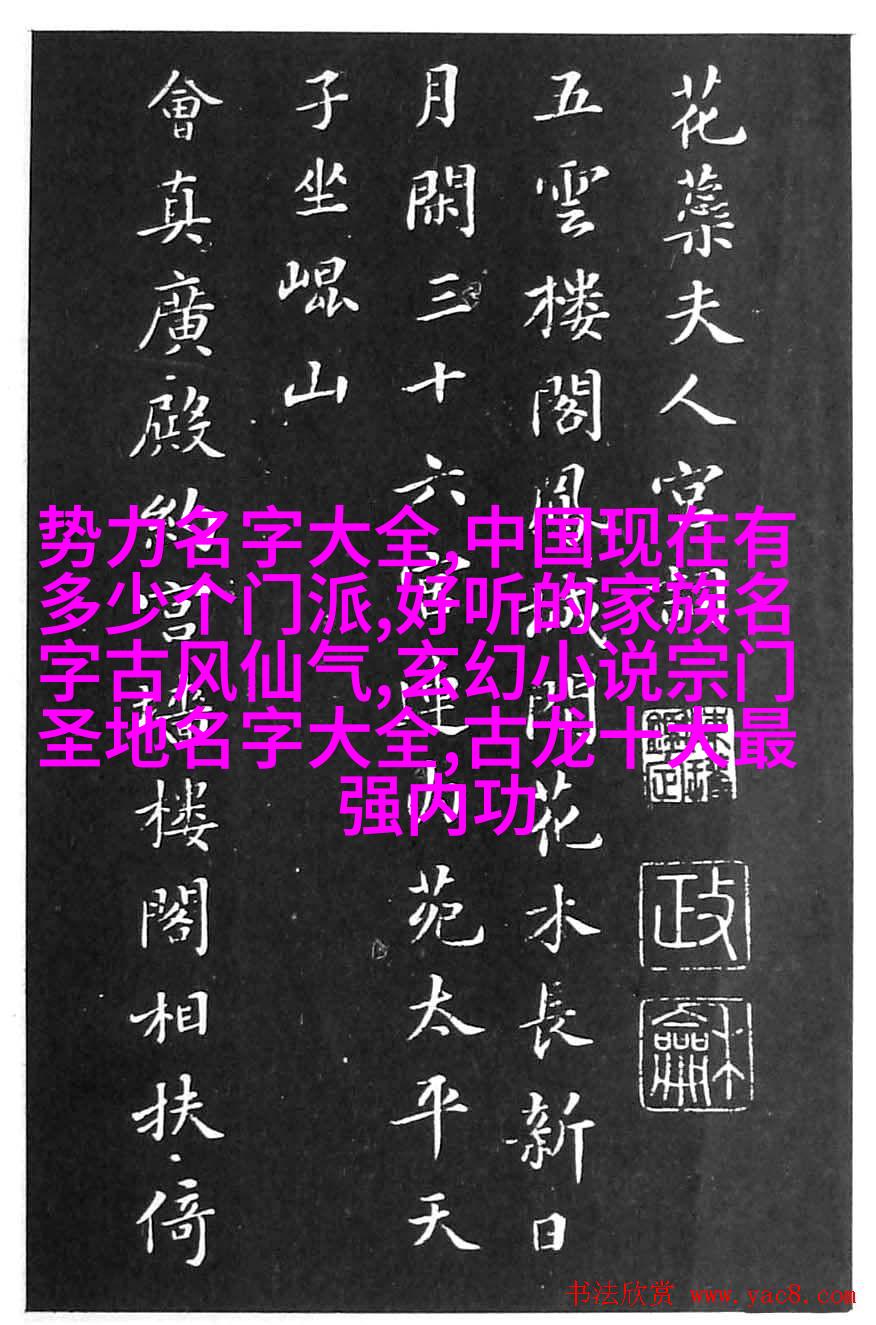 花蘂夫人宮詞
政龢
五雲楼閣鳳城間花水長新日
月閑三十六宮連内苑太平天
子坐崐山
會真廣殿約宮墻楼閣相扶倚
势力名字大全,中国现在有
多少个门派,好听的家族名
字古风仙气,玄幻小说宗门
圣地名字大全,古龙十大最
强内功
书法欣赏 www.yac8.com